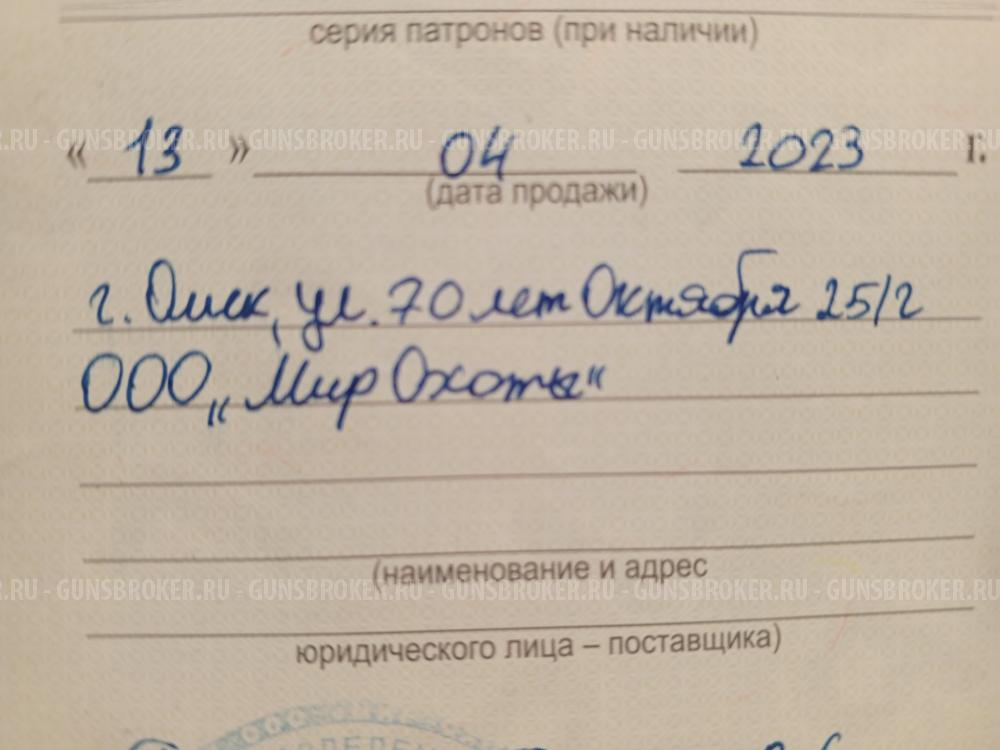 серия патронов (при наличии)
RU - GUNSBROKER.RU - GUNSBROKER.RU - GUNSBROKER.RU - GUNSBROKER.RU - GUNSBROKER.RU
« 13 » 04 2023 г.
(дата продажи)
г. Омск, ул. 70 лет Октября 25/2
ООО „Мир Охоты“
(наименование и адрес
RU - GUNSBROKER.RU - GUNSBROKER.RU - GUNSBROKER.RU - GUNSBROKER.RU - GUNSBROKER.RU
юридического лица – поставщика)
ООО